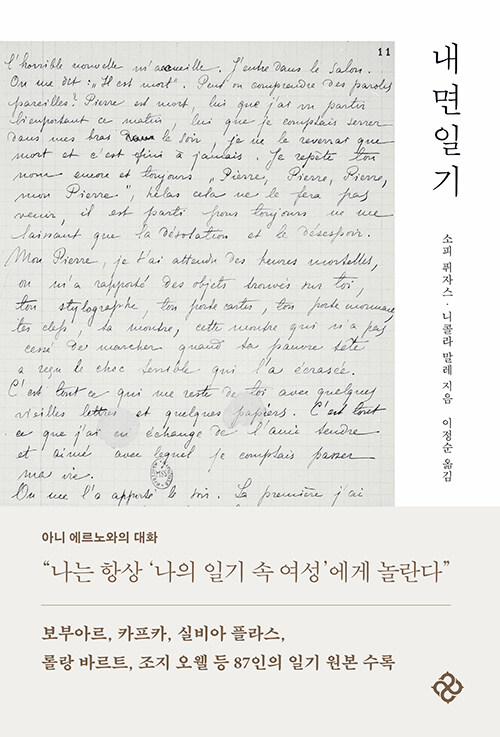 11
l'horrible nouvelle m'accueille. J'entre dans le salon.
On me dit : „Il est mort". Peut on comprendre des paroles
pareilles? Pierre est mort, lui que j'ai vu partir
bienportant ce matin, lui que je comptais serrer
dans mes bras le soir, je ne le reverrai que
mort et c'est fini à jamais. Je repète ton
nom encore et toujours „Pierre, Pierre, Pierre,
mon Pierre", hélas cela ne le fera pas
venir, il est parti pour toujours ne me
laissant que la désolation et le désespoir.
Mon Pierre, je t'ai attendu des heures mortelles,
on m'a rapporté des objets trouvés sur toi,
ton stylographe, ton porte cartes, ton porte monnaie,
tes clefs, ta montre, cette montre qui n'a pas
cessé de marcher quand ta pauvre tête
a reçu le choc terrible qui l'a écrasée.
C'est tout ce qui me reste de toi avec quelques
vieilles lettres et quelques papiers. C'est tout
ce que j'ai en échange de l'ami tendre
et aimé avec lequel je comptais passer
ma vie.
On me l'a apporté le soir. La première j'ai
내면일기
소피 퓌자스·니콜라 말레 지음 이정순 옮김
아니 에르노와의 대화
“나는 항상 ‘나의 일기 속 여성’에게 놀란다”
보부아르, 카프카, 실비아 플라스,
롤랑 바르트, 조지 오웰 등 87인의 일기 원본 수록